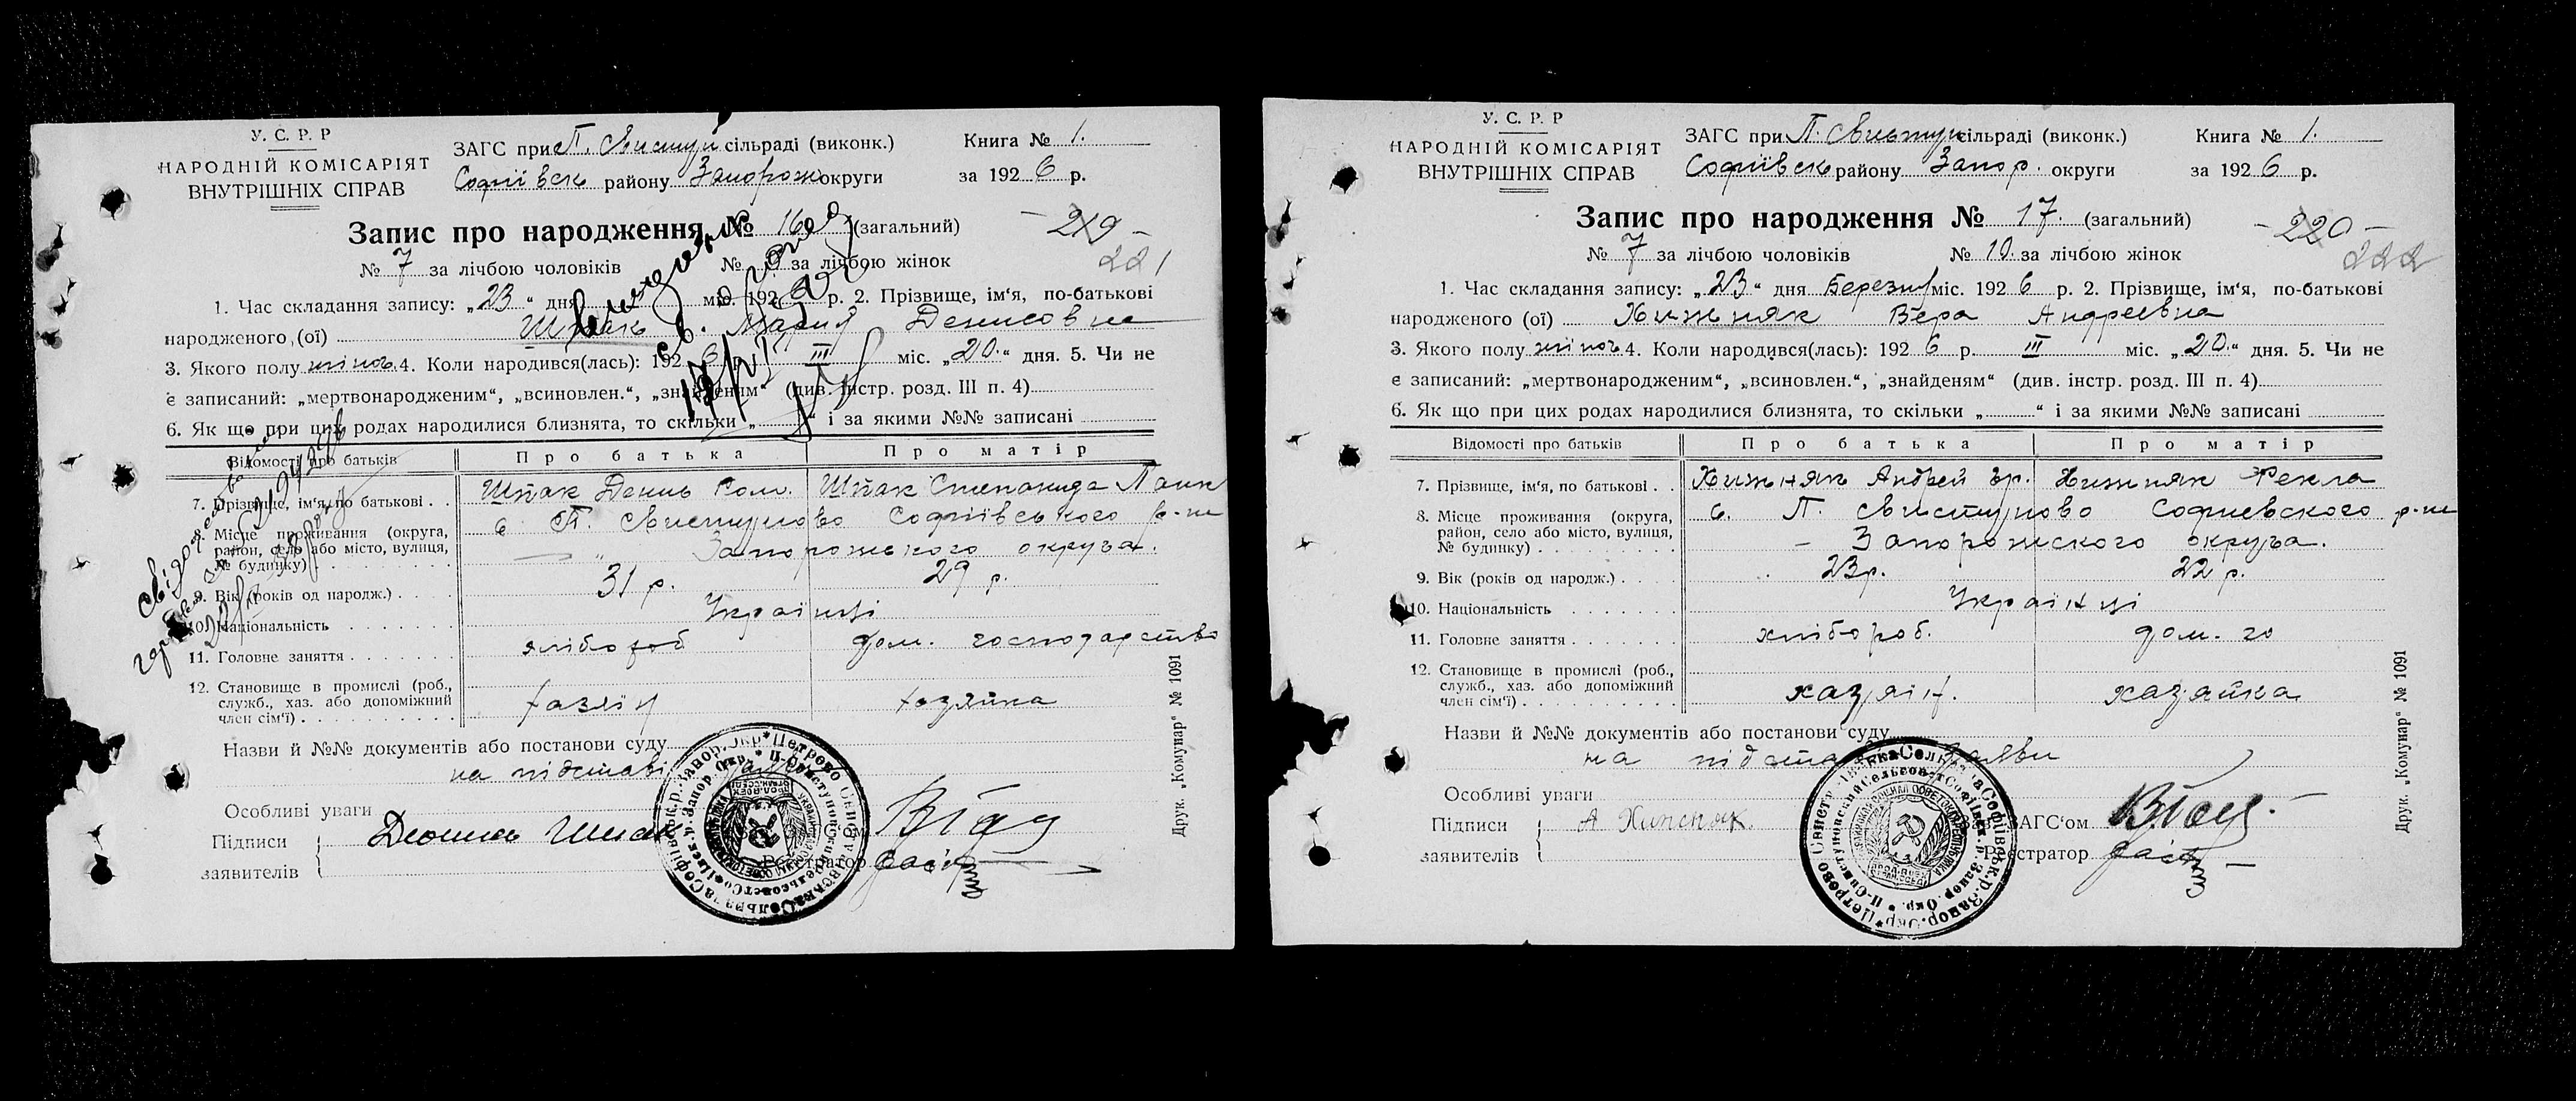 У. С. Р. Р
НАРОДНІЙ КОМІСАРІЯТ
ВНУТРІШНІХ СПРАВ
ЗАГС при П. Свистун сільраді (виконк.)
Софіївськ району Запорож округи
Книга № 1.
за 1926 р.
Запис про народження № 16 (загальний)
— 219 —
221
№ 7 за лічбою чоловіків № 9 за лічбою жінок
1. Час складання запису: „23“ дня міс. 1926 р. 2. Прізвище, ім‘я, по-батькові
народженого (ої) Шпак Мария Денисовна
3. Якого полу жіноч. 4. Коли народився(лась): 1926 р. III міс. „20.“ дня. 5. Чи не
є записаний: „мертвонародженим“, „всиновлен.“, „знайденям“ (див. інстр. розд. III п. 4)
6. Як що при цих родах народилися близнята, то скільки „ “ і за якими №№ записані
Відомості про батьків Про батька Про матір
7. Прізвище, ім‘я, по батькові . . Шпак Денис Шпак Степанида
8. Місце проживання (округа, район, село або місто, вулиця, № будинку) с П. Свистуново Софіївського р-ну
— „ Запорожського округа.
9. Вік (років од народж.) . . . 31 р. 29 р.
10. Національність Українці
11. Головне заняття хлібороб дом. господарство
12. Становище в промислі (роб., служб., хаз. або допоміжний член сім‘ї) хазяїн хазяйка
Назви й №№ документів або постанови суду
на підставі заяви
Особливі уваги
Підписи заявителів Шпак
Реєстратор
Друк. „Комунар“ № 1091
У. С. Р. Р
НАРОДНІЙ КОМІСАРІЯТ
ВНУТРІШНІХ СПРАВ
ЗАГС при П. Свистун сільраді (виконк.)
Софіївськ району Запор. округи
Книга № 1.
за 1926 р.
Запис про народження № 17. (загальний)
— 220 —
222
№ 7 за лічбою чоловіків № 10. за лічбою жінок
1. Час складання запису: „23“ дня Березня міс. 1926 р. 2. Прізвище, ім‘я, по-батькові
народженого (ої) Хижняк Вера Андреевна
3. Якого полу жіноч. 4. Коли народився(лась): 1926 р. III міс. „20.“ дня. 5. Чи не
є записаний: „мертвонародженим“, „всиновлен.“, „знайденям“ (див. інстр. розд. III п. 4)
6. Як що при цих родах народилися близнята, то скільки „ “ і за якими №№ записані
Відомості про батьків Про батька Про матір
7. Прізвище, ім‘я, по батькові . . Хижняк Андрей Гр. Хижняк Фекла
8. Місце проживання (округа, район, село або місто, вулиця, № будинку) с. П. Свистуново Софиевского р-ну
— Запорожского округа.
9. Вік (років од народж.) . . . 23р. 22 р.
10. Національність Українці
11. Головне заняття хлібороб. дом. го
12. Становище в промислі (роб., служб., хаз. або допоміжний член сім‘ї) хазяїн. хазяйка
Назви й №№ документів або постанови суду
на підставі заяви
Особливі уваги
Підписи заявителів А Хижняк.
ЗАГС‘ом
Реєстратор
Друк. „Комунар“ № 1091